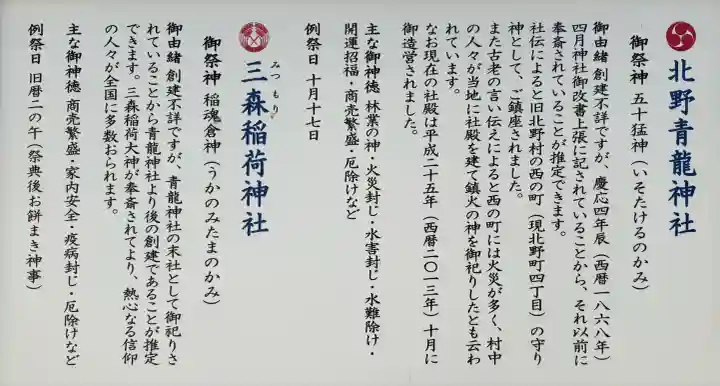 北野青龍神社
御祭神 五十猛神（いそたけるのかみ）
御由緒 創建不詳ですが、慶応四年辰（西暦一八六八年）
四月神社御改書上張に記されていることから、それ以前に
奉斎されていることが推定できます。
社伝によると旧北野村の西の町（現北野町四丁目）の守り
神として、ご鎮座されました。
また古老の言い伝えによると西の町には火災が多く、村中
の人々が当地に社殿を建て鎮火の神を御祀りしたとも云わ
れています。
なお現在の社殿は平成二十五年（西暦二〇一三年）十月に
御造営されました。
主な御神徳 林業の神・火災封じ・水害封じ・水難除け・
開運招福・商売繁盛・厄除けなど
例祭日 十月十七日
三森稲荷神社
みつもり
御祭神 稲魂倉神（うかのみたまのかみ）
御由緒 創建不詳ですが、青龍神社の末社として御祀りさ
れていることから青龍神社より後の創建であることが推定
できます。三森稲荷大神が奉斎されてより、熱心なる信仰
の人々が全国に多数おられます。
主な御神徳 商売繁盛・家内安全・疫病封じ・厄除けなど
例祭日 旧暦二の午（祭典後お餅まき神事）